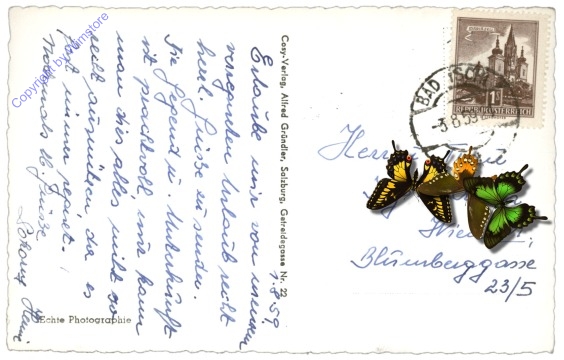 1.8.59
Erlaube mir von unserem
vergangenen Urlaub recht
herzl. Grüsse zu senden.
Die Gegend u. Unterkunft
ist prachtvoll, nur kann
man dies alles nicht so
recht ausnützen da es
fast immer regnet.
Nochmals lb. Grüsse
Cosy-Verlag, Alfred Gründler, Salzburg, Getreidegasse Nr. 22
Echte Photographie
Copyright by oldimstore
BAD ISCHL
-3.8.59
1
REPUBLIK ÖSTERREICH
Herrn
Wien
Blumberggasse
23/5